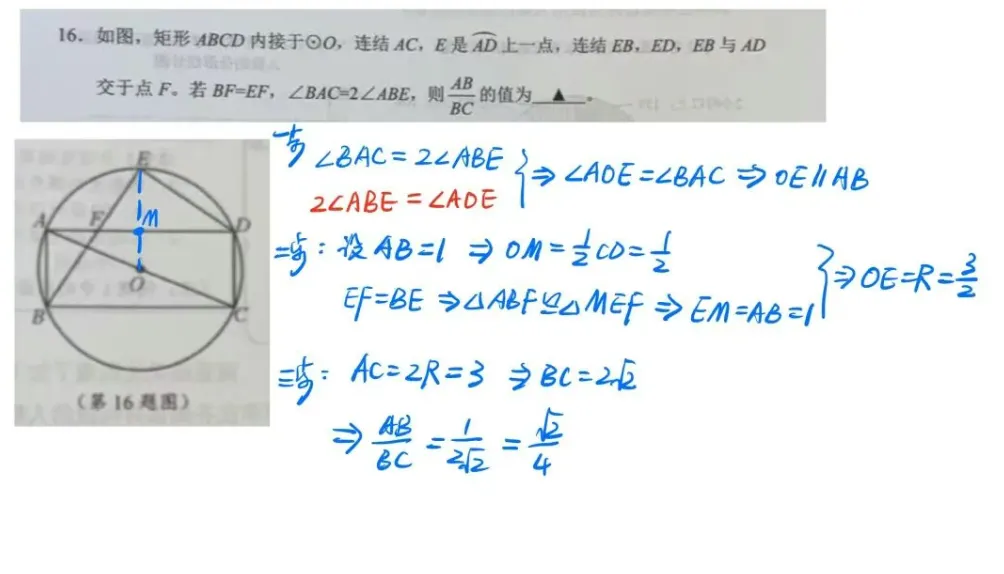 16. 如图，矩形 ABCD 内接于⊙O，连结 AC，E 是 AD⌒ 上一点，连结 EB，ED，EB 与 AD
交于点 F。若 BF=EF，∠BAC=2∠ABE，则 AB/BC 的值为 ▲ 。
一步 ∠BAC=2∠ABE
2∠ABE=∠AOE
} ⇒ ∠AOE=∠BAC ⇒ OE∥AB
二步：设 AB=1 ⇒ OM=1/2 CD=1/2
EF=BE ⇒ △ABF≌△MEF ⇒ EM=AB=1
} ⇒ OE=R=3/2
三步：AC=2R=3 ⇒ BC=2√2
⇒ AB/BC = 1/2√2 = √2/4
E
A F M D
O
B C
（第 16 题图）